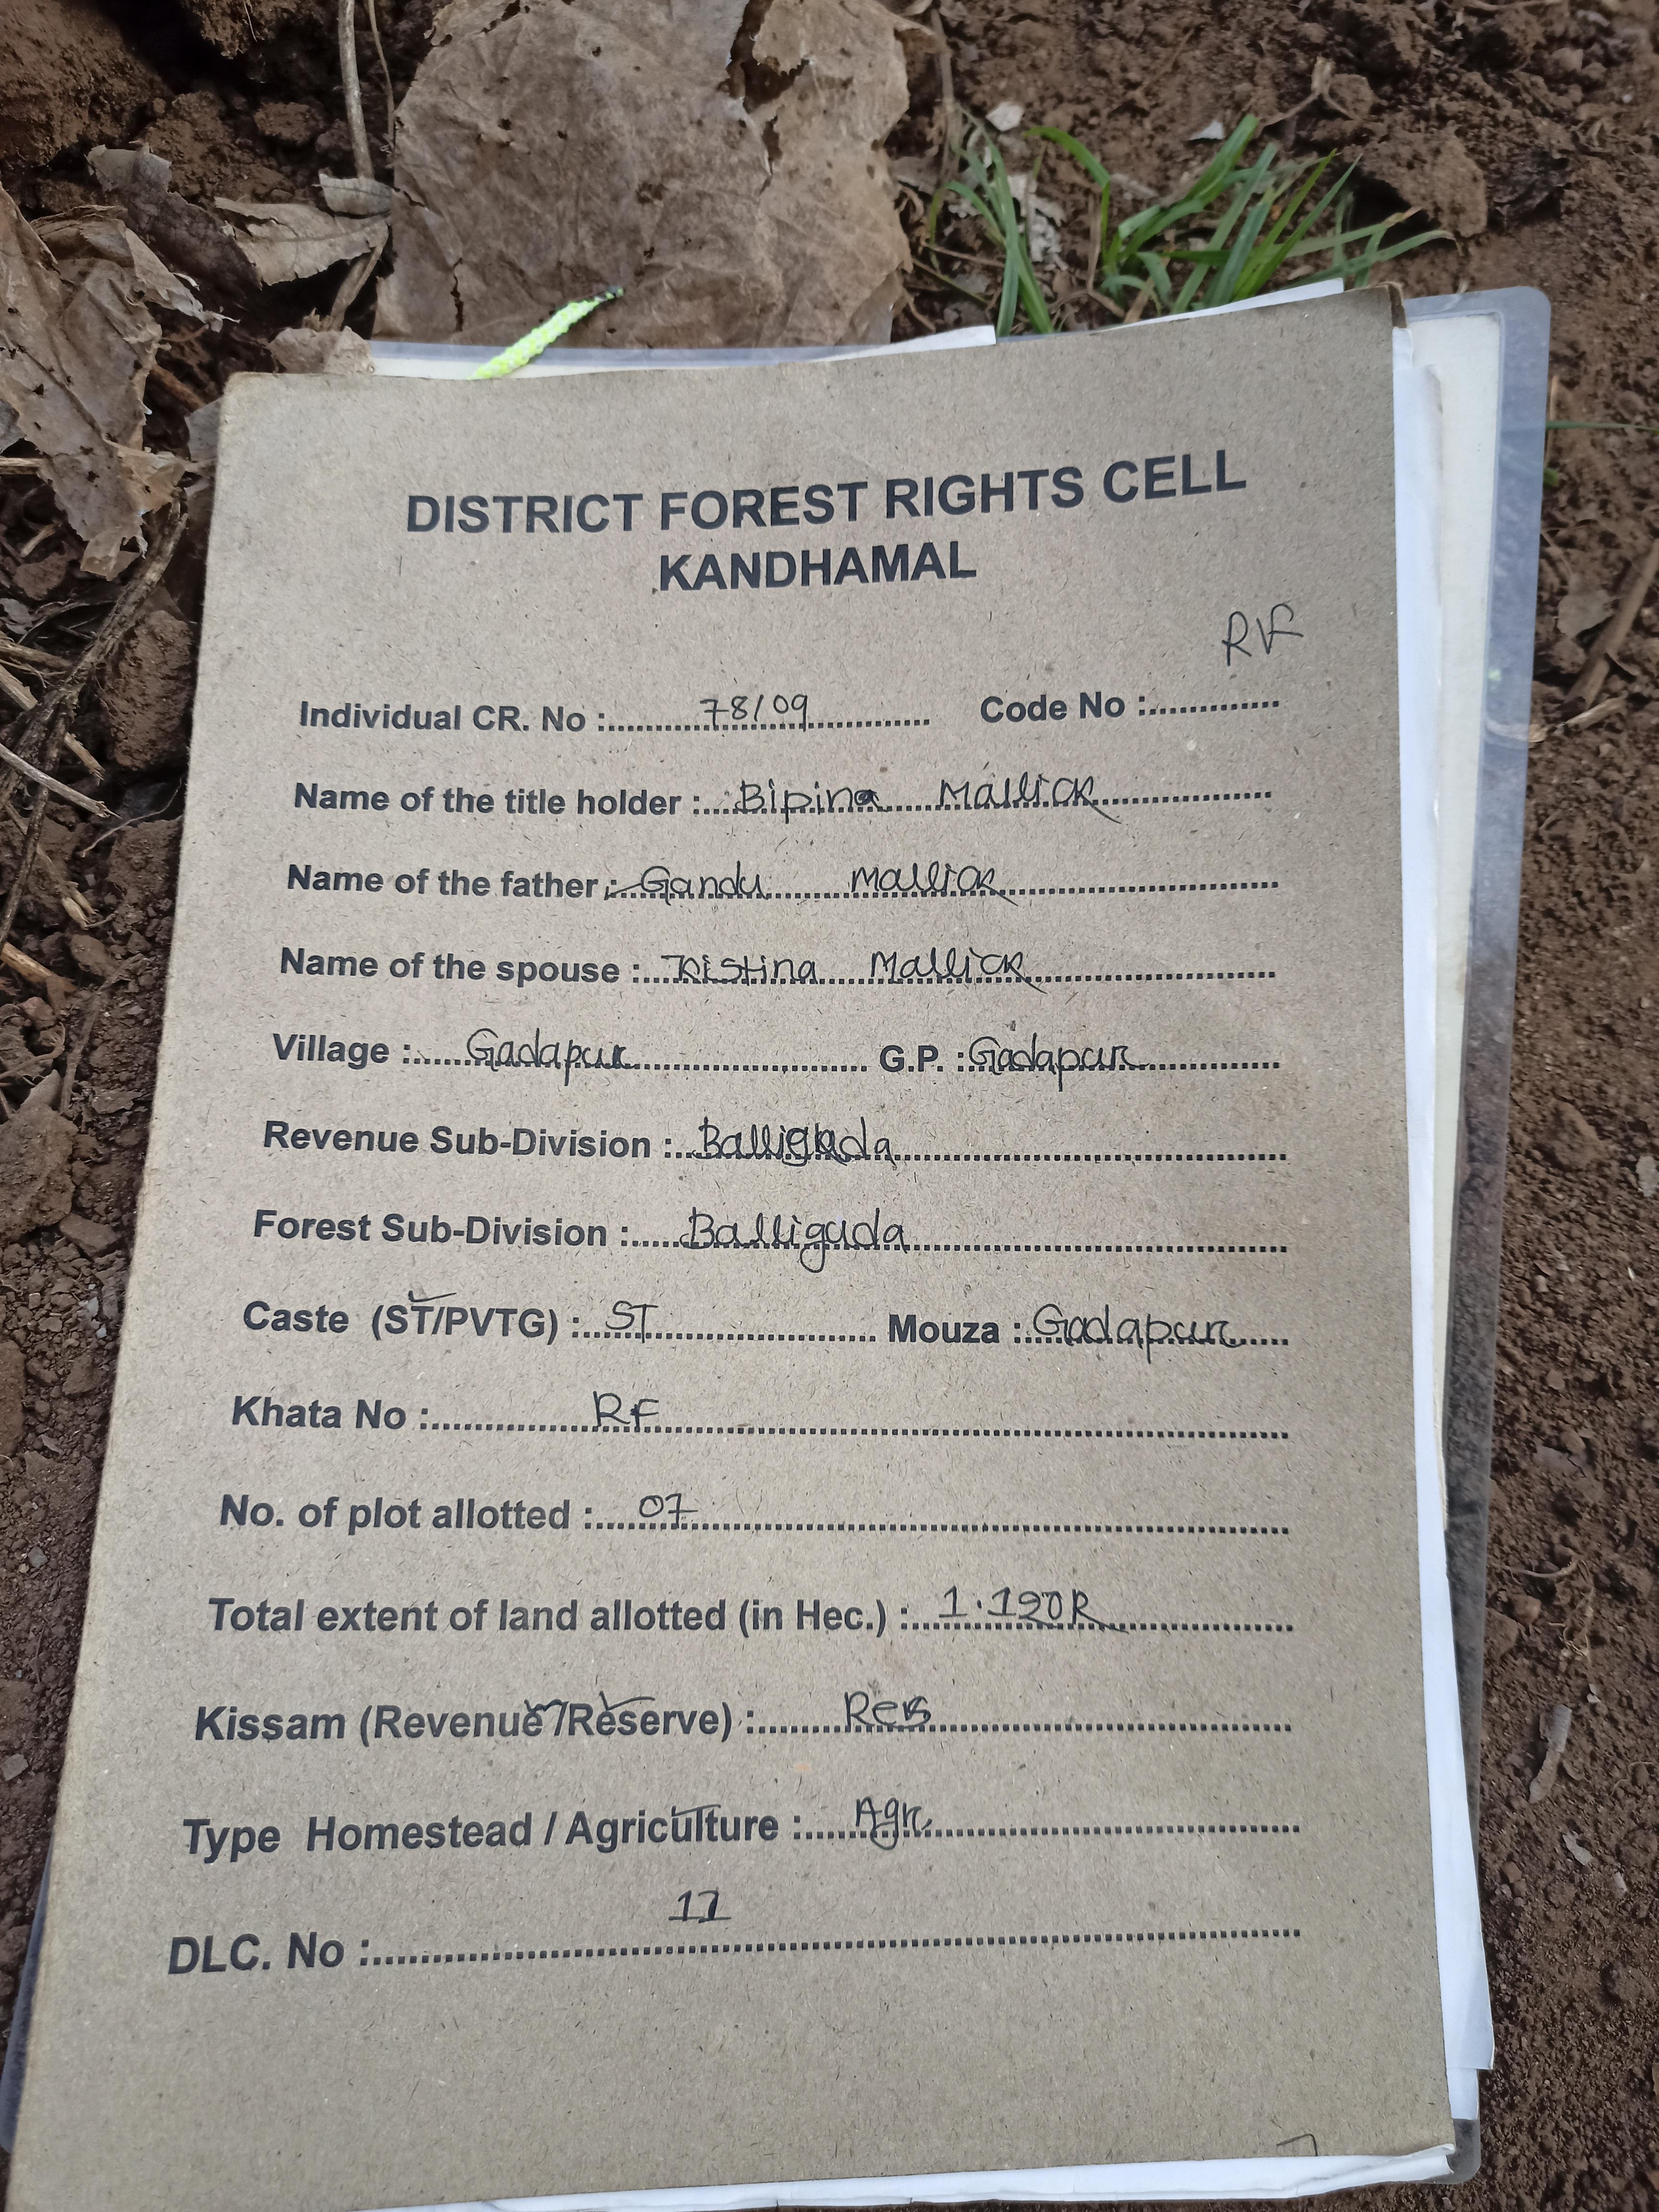 DISTRICT FOREST RIGHTS CELL
KANDHAMAL
RF
Individual CR. No : 78/09 Code No :
Name of the title holder : Bipina Mallick
Name of the father : Gandu Mallick
Name of the spouse : Kristina Mallick
Village : Gadapur G.P. : Gadapur
Revenue Sub-Division : Balliguda
Forest Sub-Division : Balliguda
Caste (ST/PVTG) : ST Mouza : Gadapur
Khata No : RF
No. of plot allotted : 07
Total extent of land allotted (in Hec.) :
Kissam (Revenue/Reserve) : Res
Type Homestead / Agriculture : Agr
DLC. No : 11